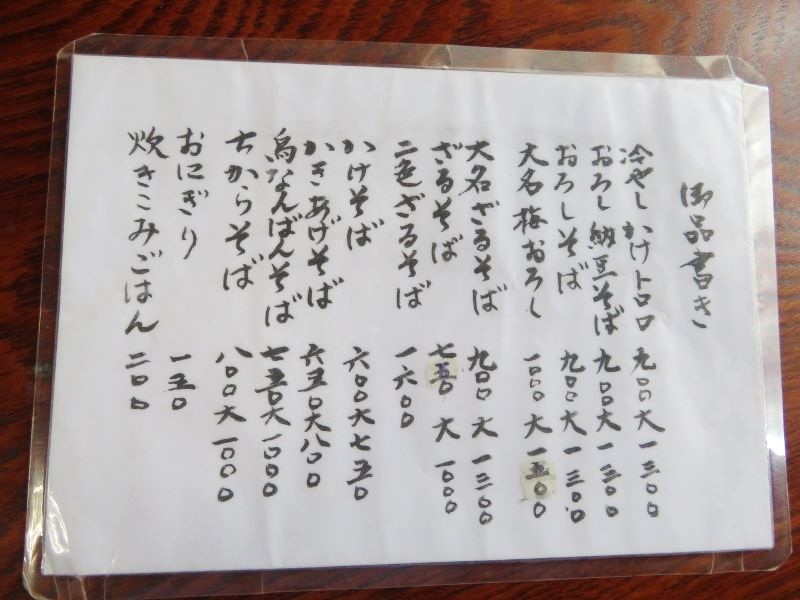 御品書き
冷やしかけトロロ 九〇〇 大 一三〇〇
おろし納豆そば 九〇〇 大 一三〇〇
おろしそば 九〇〇 大 一三〇〇
大名梅おろし 一〇〇〇 大 一五〇〇
大名ざるそば 九〇〇 大 一三〇〇
ざるそば 七五〇 大 一〇〇〇
二色ざるそば 一六〇〇
かけそば 六〇〇 大 七五〇
かきあげそば 六五〇 大 八〇〇
鳥なんばんそば 七五〇 大 一〇〇〇
ちからそば 八〇〇 大 一〇〇〇
おにぎり 一五〇
炊きこみごはん 二〇〇